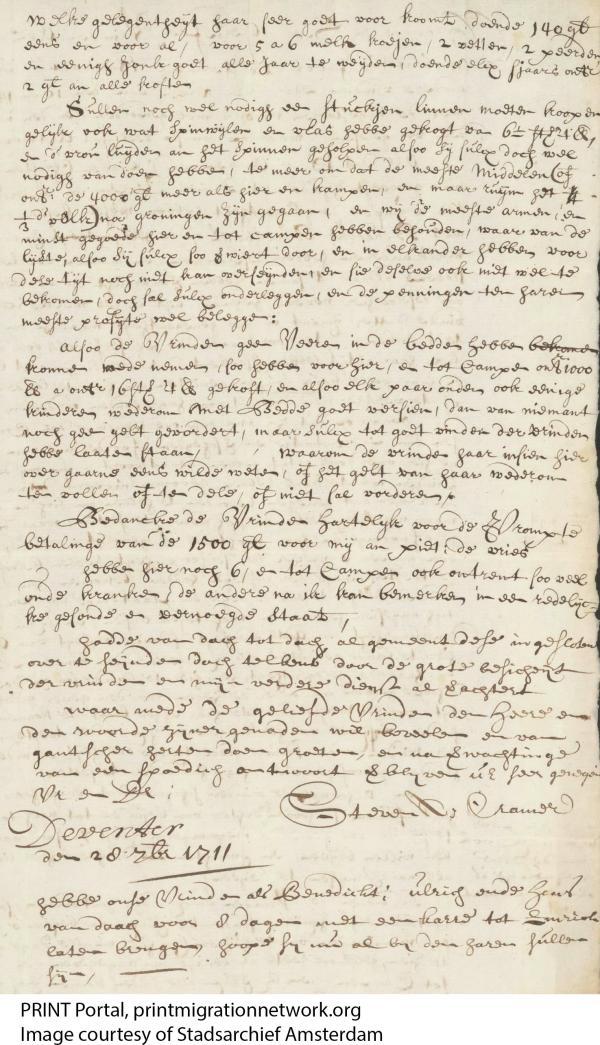 welke gelegentheyt haar seer goet voor koomt doende 140 gl
eens en voor al, voor 5 a 6 melk koejen, 2 vetten, 2 peerden
en eenigh jonk goet alle jaar te weyden, doende elex sjaars
2 gl an alle
Sullen noch wel nodigh een stuckjen linnen moeten koopen
gelijk ook wat spinwijlen en vlas hebbe gekogt van
en d'vrou luyden an het spinnen geholpen alsoo sij sulx doch wel
nodigh van doen hebben, te meer om dat de meeste middelen of
de 4000 gl meer als hier en kampen, en maar ruym het
volk na groningen zijn gegaan, en wij de meeste armen, en
minst gegoede hier en tot Campen hebben behouden, waar van de
alsoo sij sulx soo door, en in elkander hebben voor
dese tijt noch niet kan overseynden, en sie deselve ook niet wel te
bekomen, doch sal sulx onderleggen, en de penningen ten haren
meeste profijte wel belegge:
alsoo de Vrinden geen Veeren in de bedden hebben
konne mede nemen, soo hebben voor hier, en tot Campen 1000
gekoft, en alsoo elk paar ouden ook eenige
kinderen wederom met Bedde goet versien, dan van niemant
noch geen gelt gevordert, maar sulx tot goet vinden der vrinden
hebbe laaten staan, waarom de vrinde haar insien hier
over gaarne eens wilde weten, of het gelt van haar wederom
ten vollen of ten dele, of niet sal vorderen,
Bedancke de Vrinden hartelijk voor de Prompte
betalinge van de 1500 gl voor mij an piet: de vries
hebben hier noch 6, en tot Campen ook ontrent soo veel
oude kranken, de andere na ik kan bemerken in een redelijc-
ke gesonde en vernoegde staat,
hadde van dach tot dach al gemeent dese ingesloten
over te seynden doch telkens door de grote besicheyt
der vrinden en mijn verdere dienst al
waar mede de geliefde Vrinden den Heere en
den woorde zijner genaden wil beveelen en van
gantscher herten doen groeten, en na
van een spoedich antwoort blijven UE seer genegen
Vr en Dr:
Steven Cramer
Deventer
den 28 7br 1711
hebbe onse Vrinden als Benedicht: ulrich ende Hans
van daach voor 8 dagen met een karre tot
laten brengen, hoope sij nu al bij den haren sullen
sijn,
PRINT Portal, printmigrationnetwork.org
Image courtesy of Stadsarchief Amsterdam